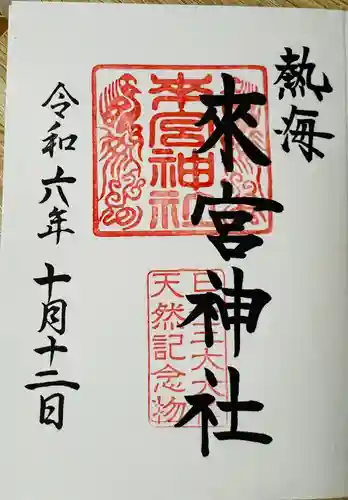 熱海
來宮神社
來宮神社
天然記念物
令和六年 十月十二日